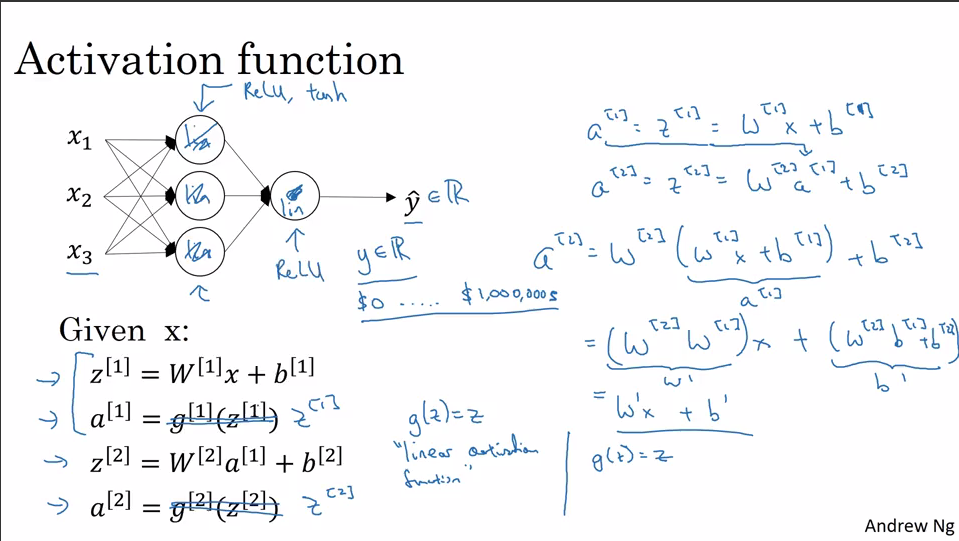 Activation function
ReLU, tanh
x₁
x₂
x₃
lin
ŷ ∈ ℝ
ReLU
y ∈ ℝ
$0 ..... $1,000,000s
Given x:
z^[1] = W^[1]x + b^[1]
a^[1] = g^[1](z^[1]) z^[1]
z^[2] = W^[2]a^[1] + b^[2]
a^[2] = g^[2](z^[2]) z^[2]
g(z) = z
"linear activation
function"
a^[1] = z^[1] = W^[1] x + b^[1]
a^[2] = z^[2] = W^[2] a^[1] + b^[2]
a^[2] = W^[2] (W^[1] x + b^[1]) + b^[2]
a^[1]
= (W^[2] W^[1]) x + (W^[2] b^[1] + b^[2])
W' b'
= W'x + b'
g(z) = z
Andrew Ng